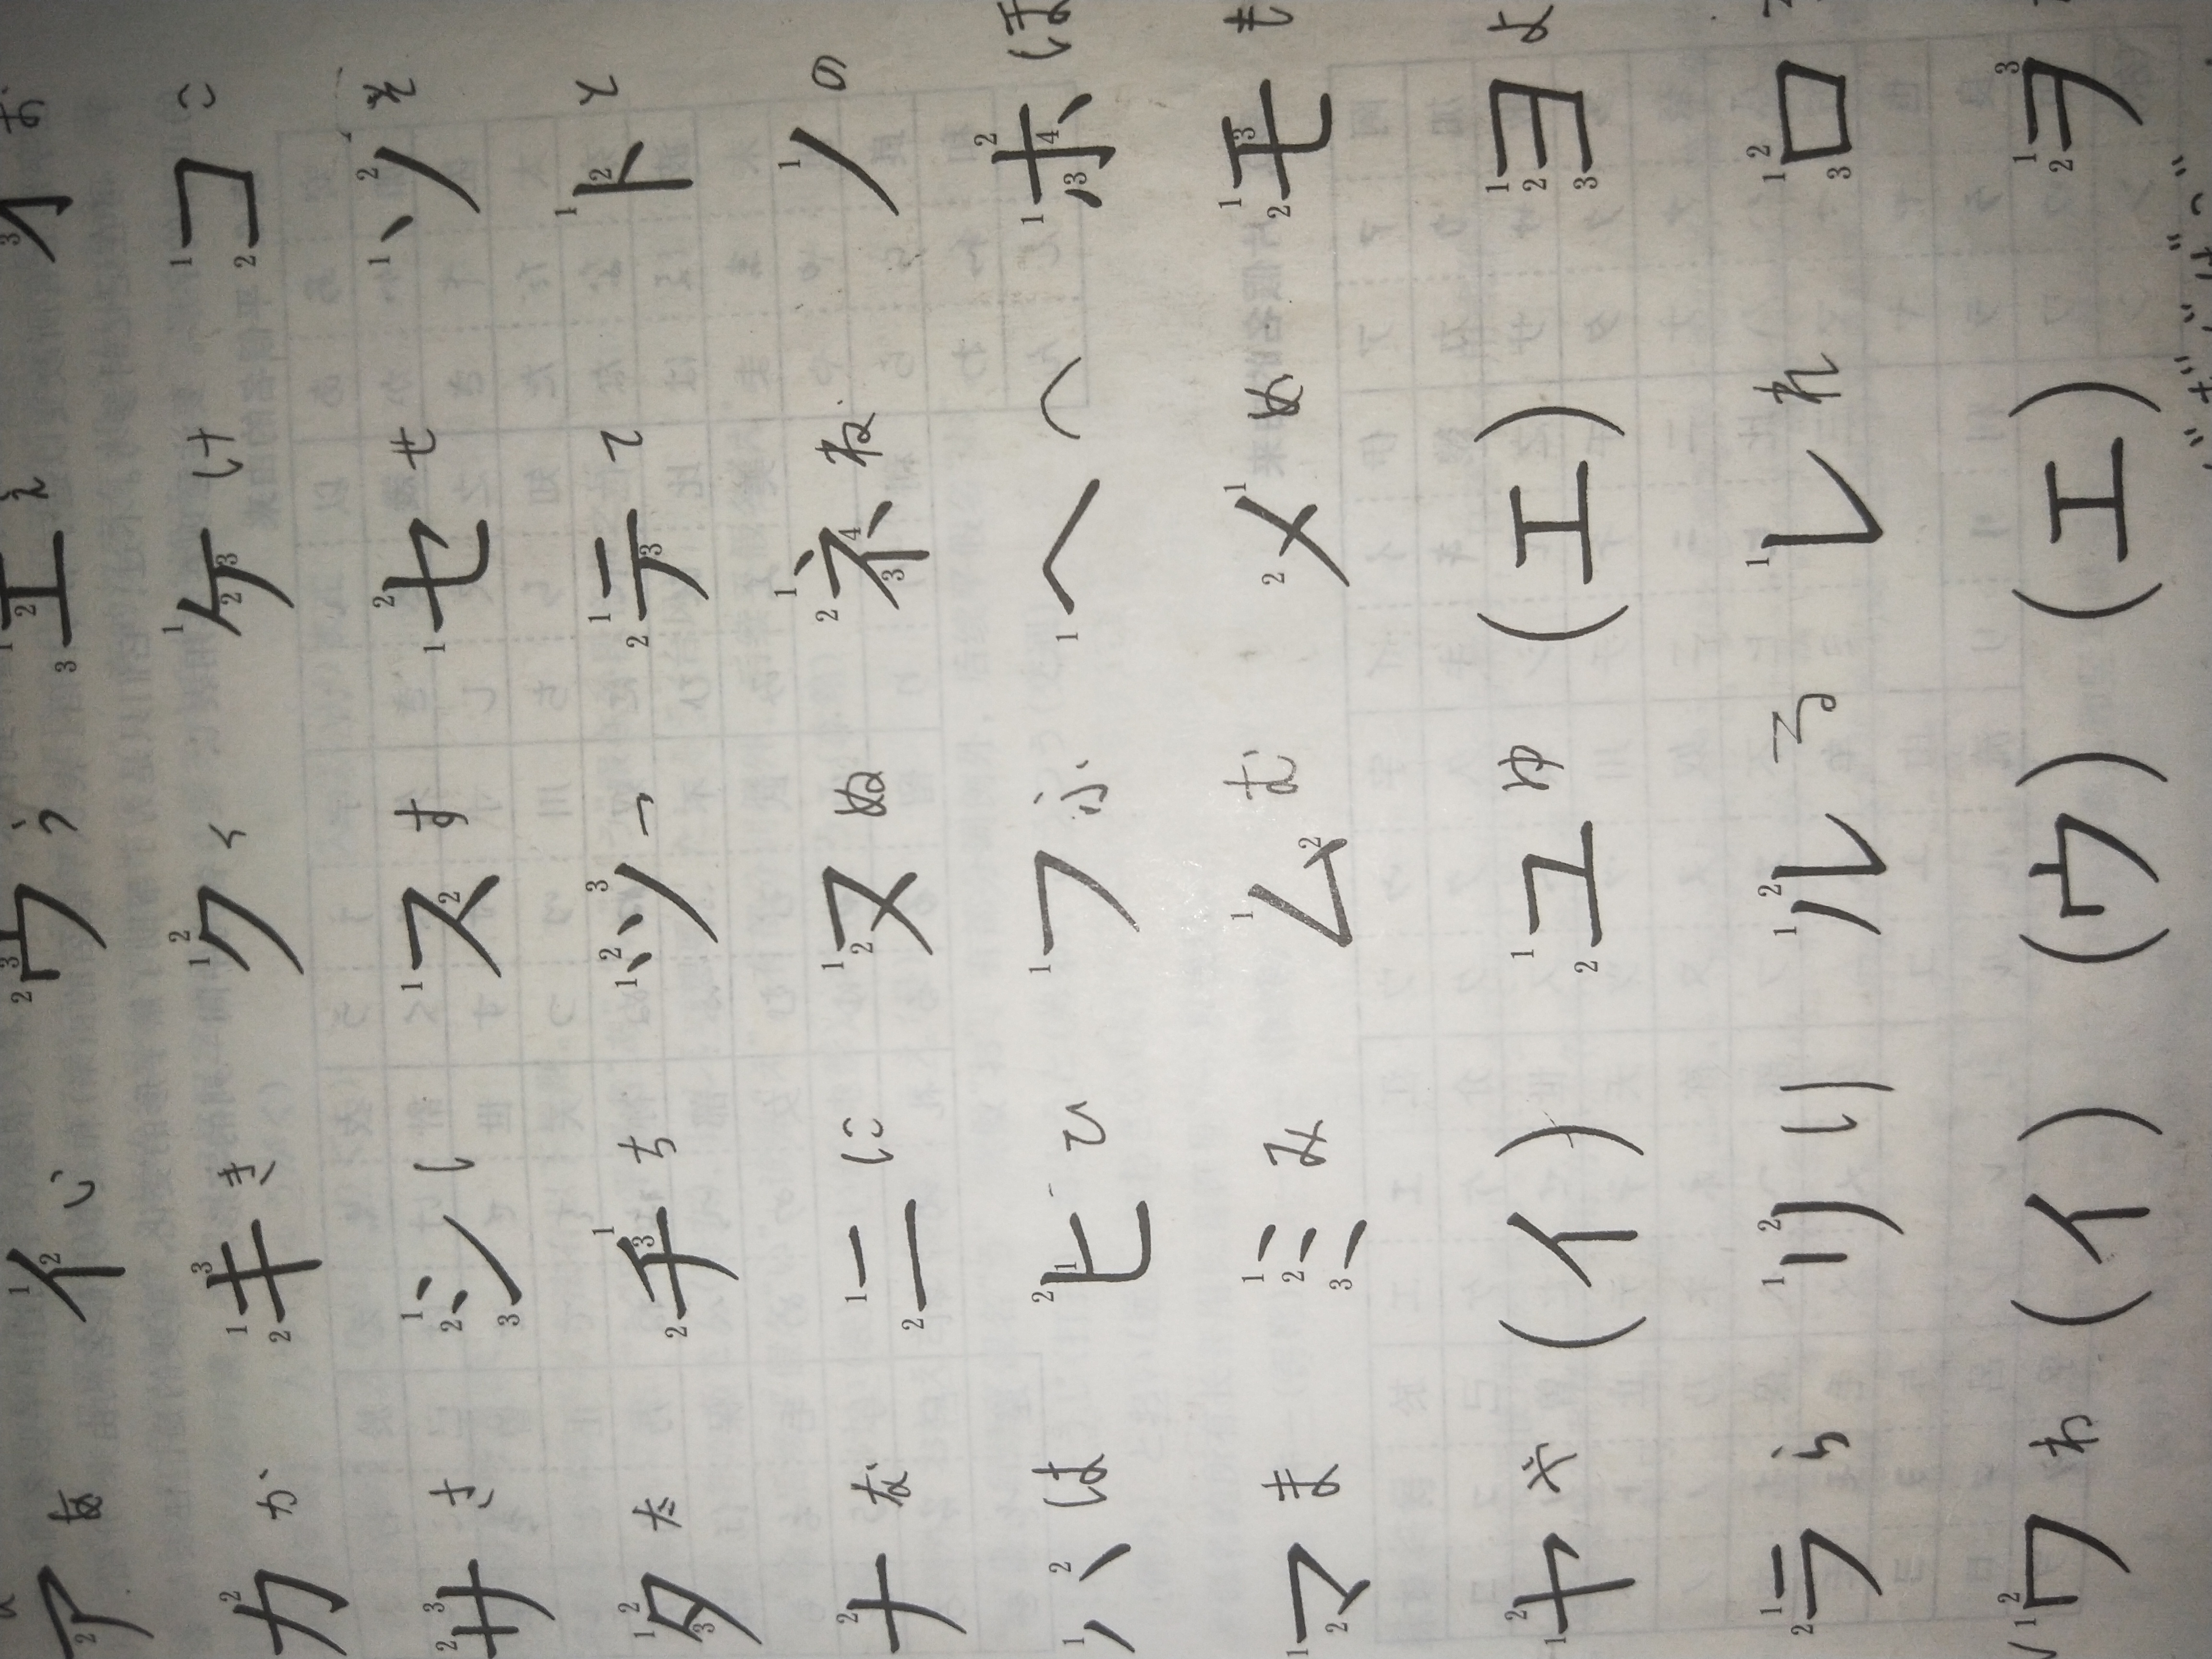 ア あ イ い ウ う エ え オ お
カ か キ き ク く ケ け コ こ
サ さ シ し ス す セ せ ソ そ
タ た チ ち ツ つ テ て ト と
ナ な ニ に ヌ ぬ ネ ね ノ の
ハ は ヒ ひ フ ふ ヘ へ ホ ほ
マ ま ミ み ム む メ め モ も
ヤ や (イ) ユ ゆ (エ) ヨ よ
ラ ら リ り ル る レ れ ロ
ワ わ (イ) (ウ) (エ) ヲ